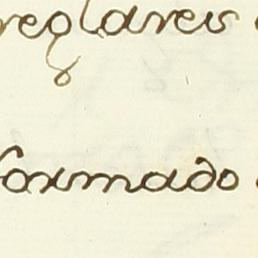 reglareis
formado